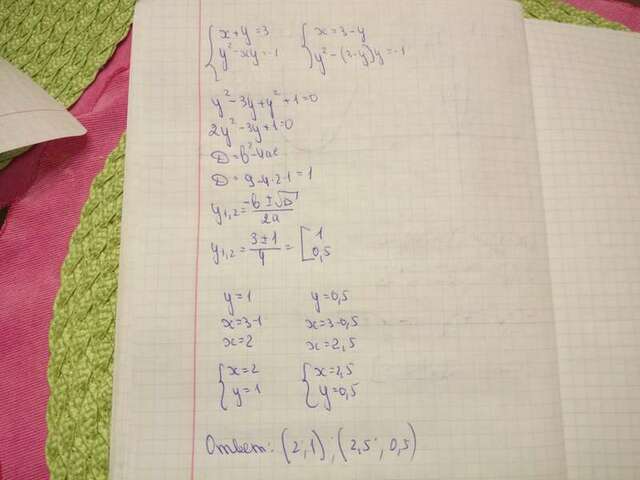 { x+y=3 { x=3-y
y²-xy=-1 y²-(3-y)y=-1
y²-3y+y²+1=0
2y²-3y+1=0
D=b²-4ac
D=9-4·2·1=1
y1,2=-b±√D/2a
y1,2=3±1/4=[1
0,5
y=1 y=0,5
x=3-1 x=3-0,5
x=2 x=2,5
{ x=2 { x=2,5
y=1 y=0,5
Ответ: (2;1);(2,5;0,5)